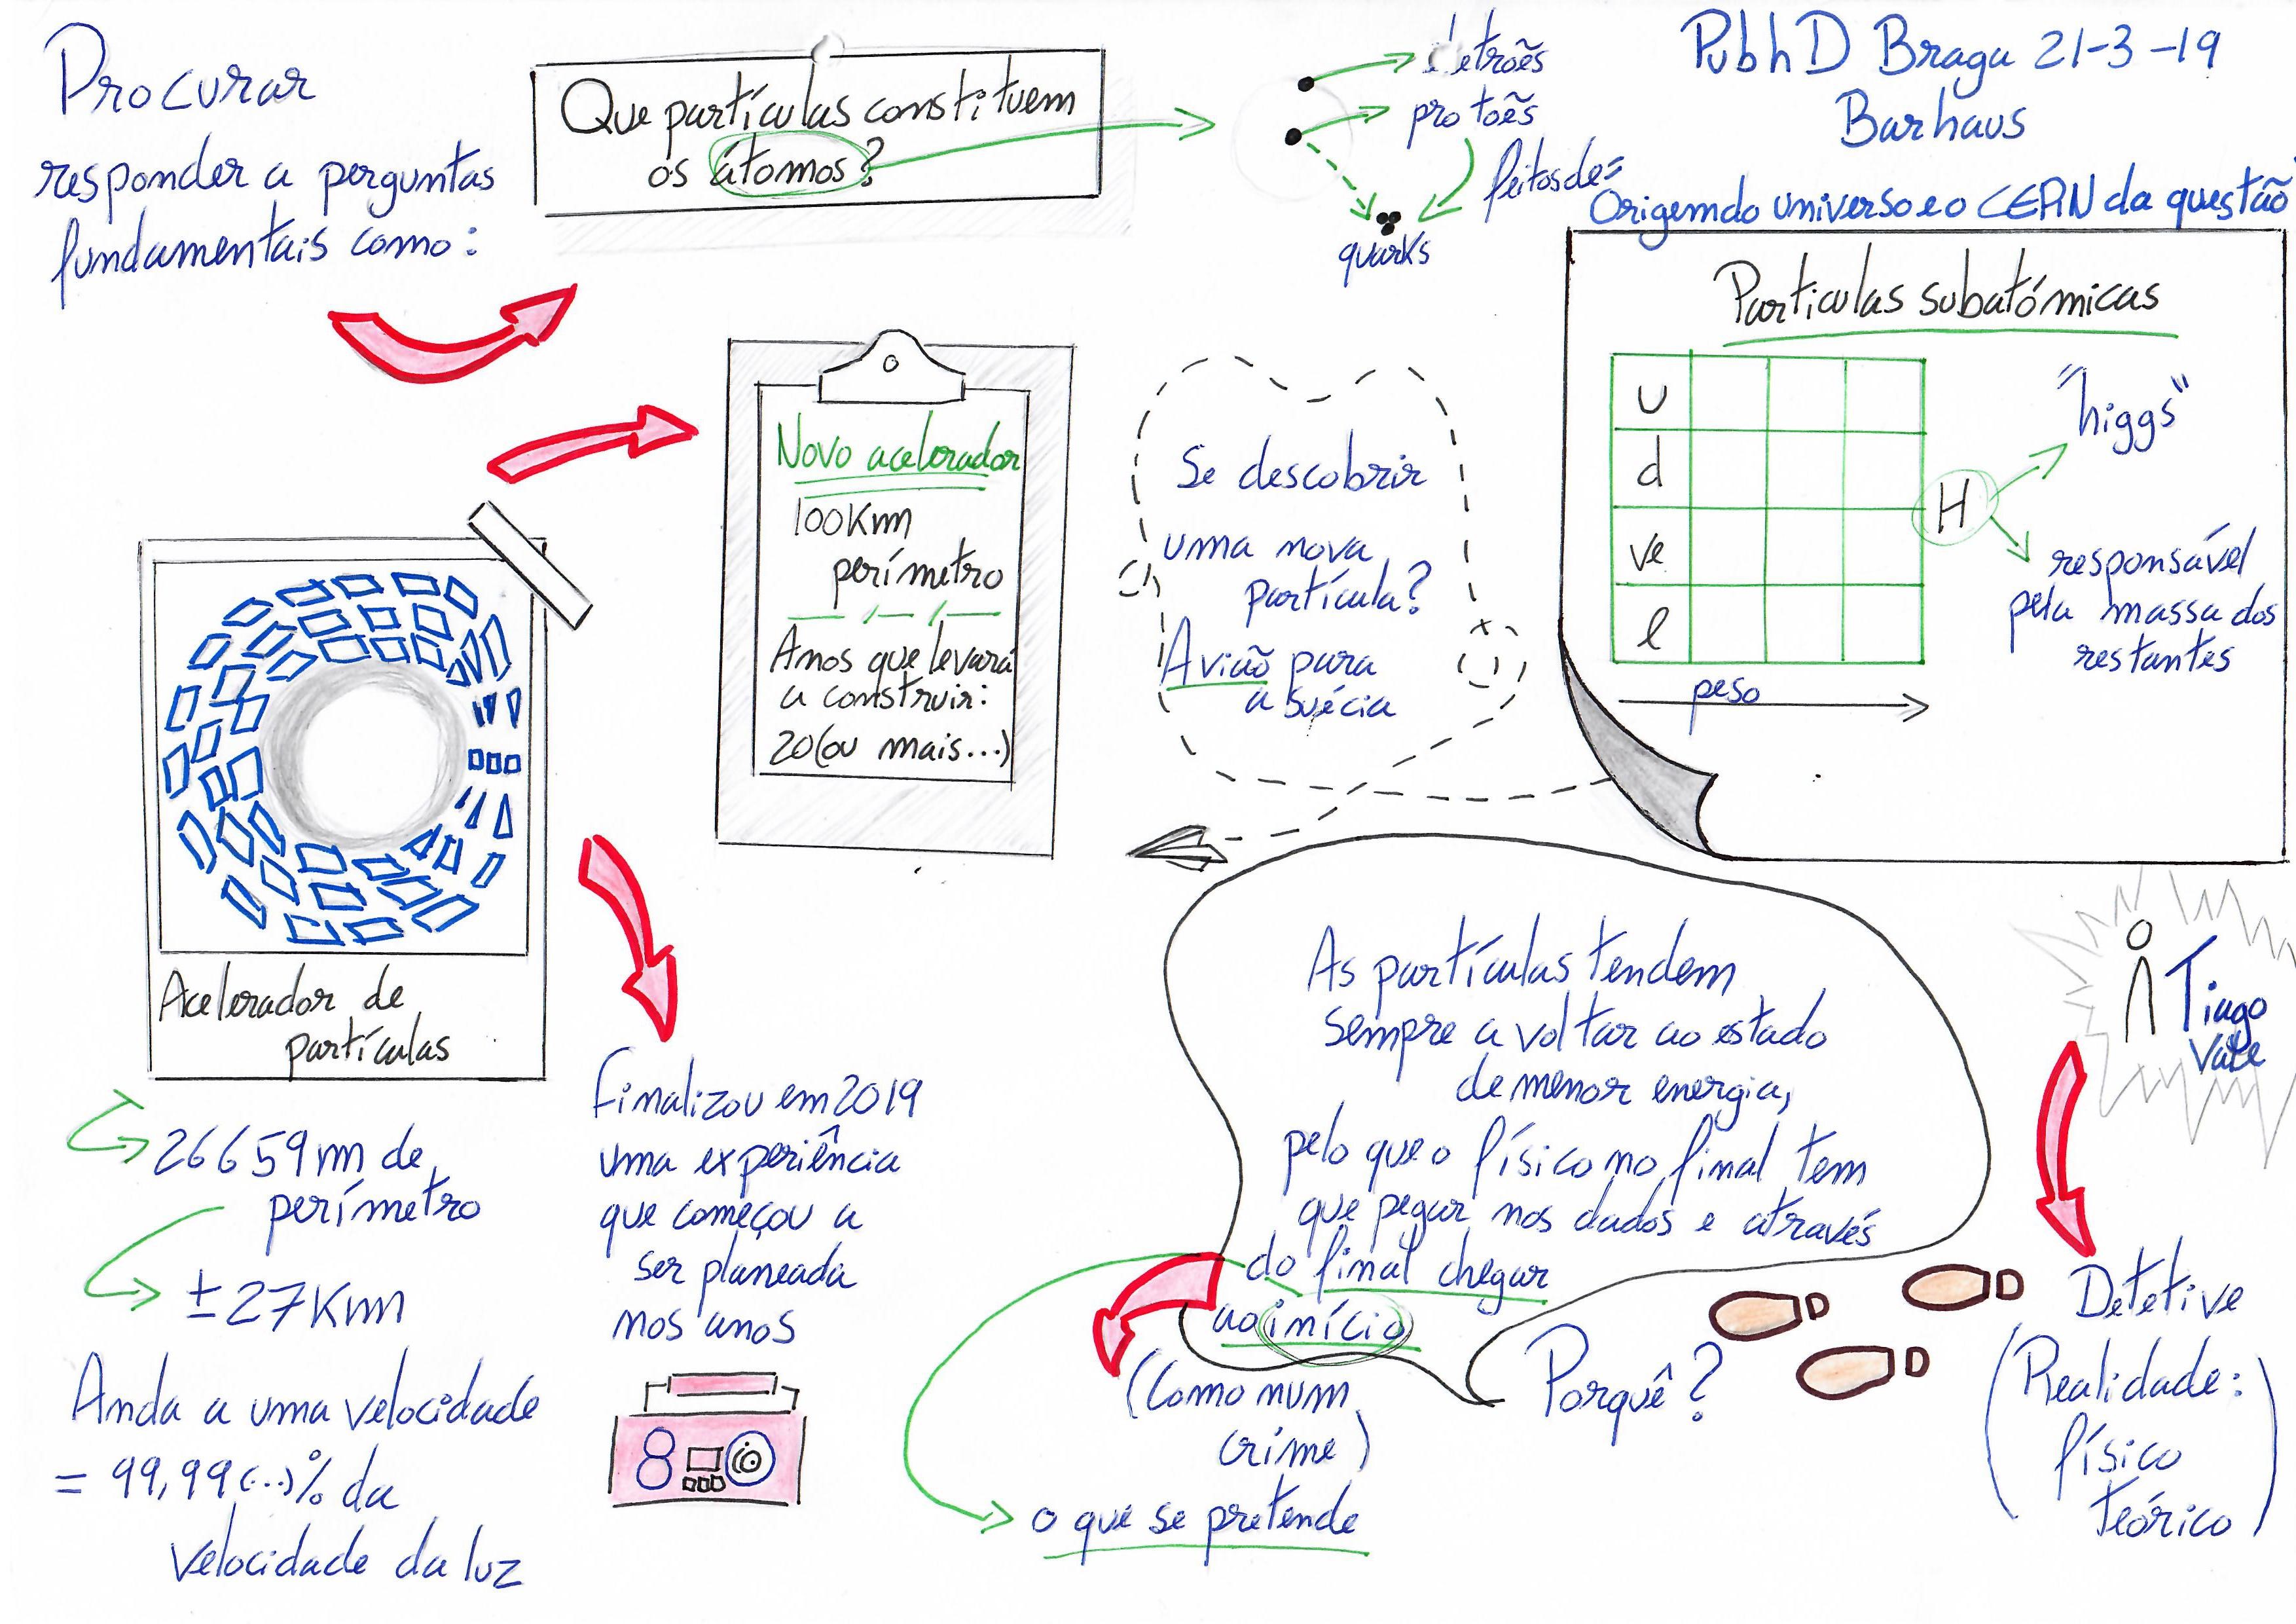 Procurar
responder a perguntas
fundamentais como:
Que partículas constituem
os átomos?
protões
feitos de=
quarks
PubhD Braga 21-3-19
Barhaus
Origem do universo e o CERN da questão
Particulas subatómicas
u
d
ve
e
H
"higgs"
responsável
pela massa dos
restantes
peso
Novo acelerador
100Km
perímetro
Anos que levará
a construir:
20(ou mais...)
Se descobrir
uma nova
partícula?
Avião para
a Suécia
Acelerador de
partículas
26659m de
perímetro
±27Km
Anda a uma velocidade
= 99,99(...)% da
velocidade da luz
Finalizou em 2019
uma experiência
que começou a
ser planeada
nos anos
80
As partículas tendem
sempre a voltar ao estado
de menor energia,
pelo que o físico no final tem
que pegar nos dados e através
do final chegar
ao início
(Como num
crime)
o que se pretende
Porquê?
Tiago
Vale
Detetive
(Realidade:
físico
teórico)